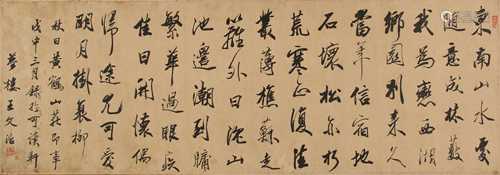 東南山水
適意成林藪
我為戀西湖
鄉園別來久
當年信宿地
石壞松亦朽
荒寒正復佳
叢薄樵蘇走
籬外日山
池邊潮到牖
繁華過眼疾
佳日開懷偶
歸途尤可愛
明月掛衰柳
秋日黃鶴山莊即事
戊申三月錄於可談軒
夢樓王文治